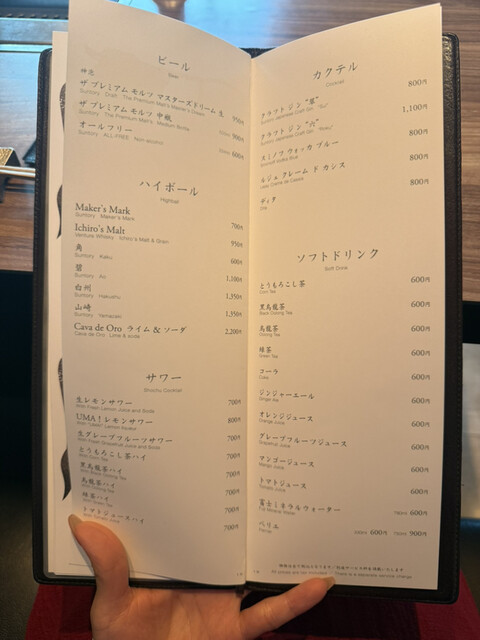 ビール
Beer
神泡
ザ プレミアム モルツ マスターズドリーム 生 950円
Suntory Draft The Premium Malt's Master's Dream
ザ プレミアム モルツ 中瓶 900円
Suntory The Premium Malt's Medium Bottle
オールフリー 600円
Suntory ALL-FREE Non-alcohol
ハイボール
Highball
Maker's Mark 700円
Suntory Maker's Mark
Ichiro's Malt 950円
Venture Whisky Ichiro's Malt & Grain
角 600円
Suntory Kaku
碧 1,100円
Suntory Ao
白州 1,350円
Suntory Hakushu
山崎 1,350円
Suntory Yamazaki
Cava de Oro ライム & ソーダ 2,200円
Cava de Oro Lime & soda
サワー
Shochu Cocktail
生レモンサワー 700円
With Fresh Lemon Juice and Soda
UMA！レモンサワー 800円
生グレープフルーツサワー 700円
With Fresh Grapefruit Juice and Soda
とうもろこし茶ハイ 700円
With Corn Tea
黒烏龍茶ハイ 700円
With Black Oolong Tea
烏龍茶ハイ 700円
With Oolong Tea
緑茶ハイ 700円
With Green Tea
トマトジュースハイ 700円
With Tomato Juice
カクテル
Cocktail
800円
クラフト ジン “翠”
Suntory Japanese Craft Gin
1,100円
クラフト ジン “六”
Suntory Japanese Craft Gin “Roku”
800円
スミノフ ウォッカ ブルー
Smirnoff Vodka Blue
800円
ルジェ クレーム ド カシス
800円
ディタ
Dita
ソフトドリンク
Soft Drink
とうもろこし茶 600円
Corn Tea
黒烏龍茶 600円
Black Oolong Tea
烏龍茶 600円
Oolong Tea
緑茶 600円
Green Tea
コーラ 600円
Coke
ジンジャーエール 600円
Ginger Ale
オレンジジュース 600円
Orange Juice
グレープフルーツジュース 600円
Grapefruit Juice
マンゴージュース 600円
Mango Juice
トマトジュース 600円
Tomato Juice
富士ミネラルウォーター 780ml 600円
Fuji Mineral Water
ペリエ 330ml 600円 750ml 900円
Perrier